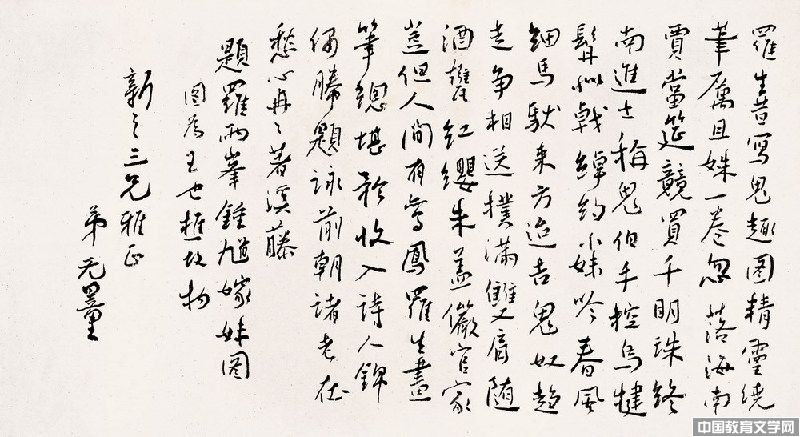 羅生昔寫鬼趣圖精靈繞
筆厲且姝一卷忽落海南
賈當筵競買千明珠終
南進士稱鬼伯手控烏犍
髯似戟綽約小妹吟春風
細馬馱來方迨吉鬼奴趨
走爭相送撲滿雙肩隨
酒甕紅纓朱蓋儼官家
豈但人間有鸞鳳羅生畫
筆總堪矜收入詩人錦
縢題詠前朝諸老在
愁心冉〻著溪藤
題羅兩峯鍾馗嫁妹圖
圖為王故物
新之三兄雅正
弟元
中国教育文学网